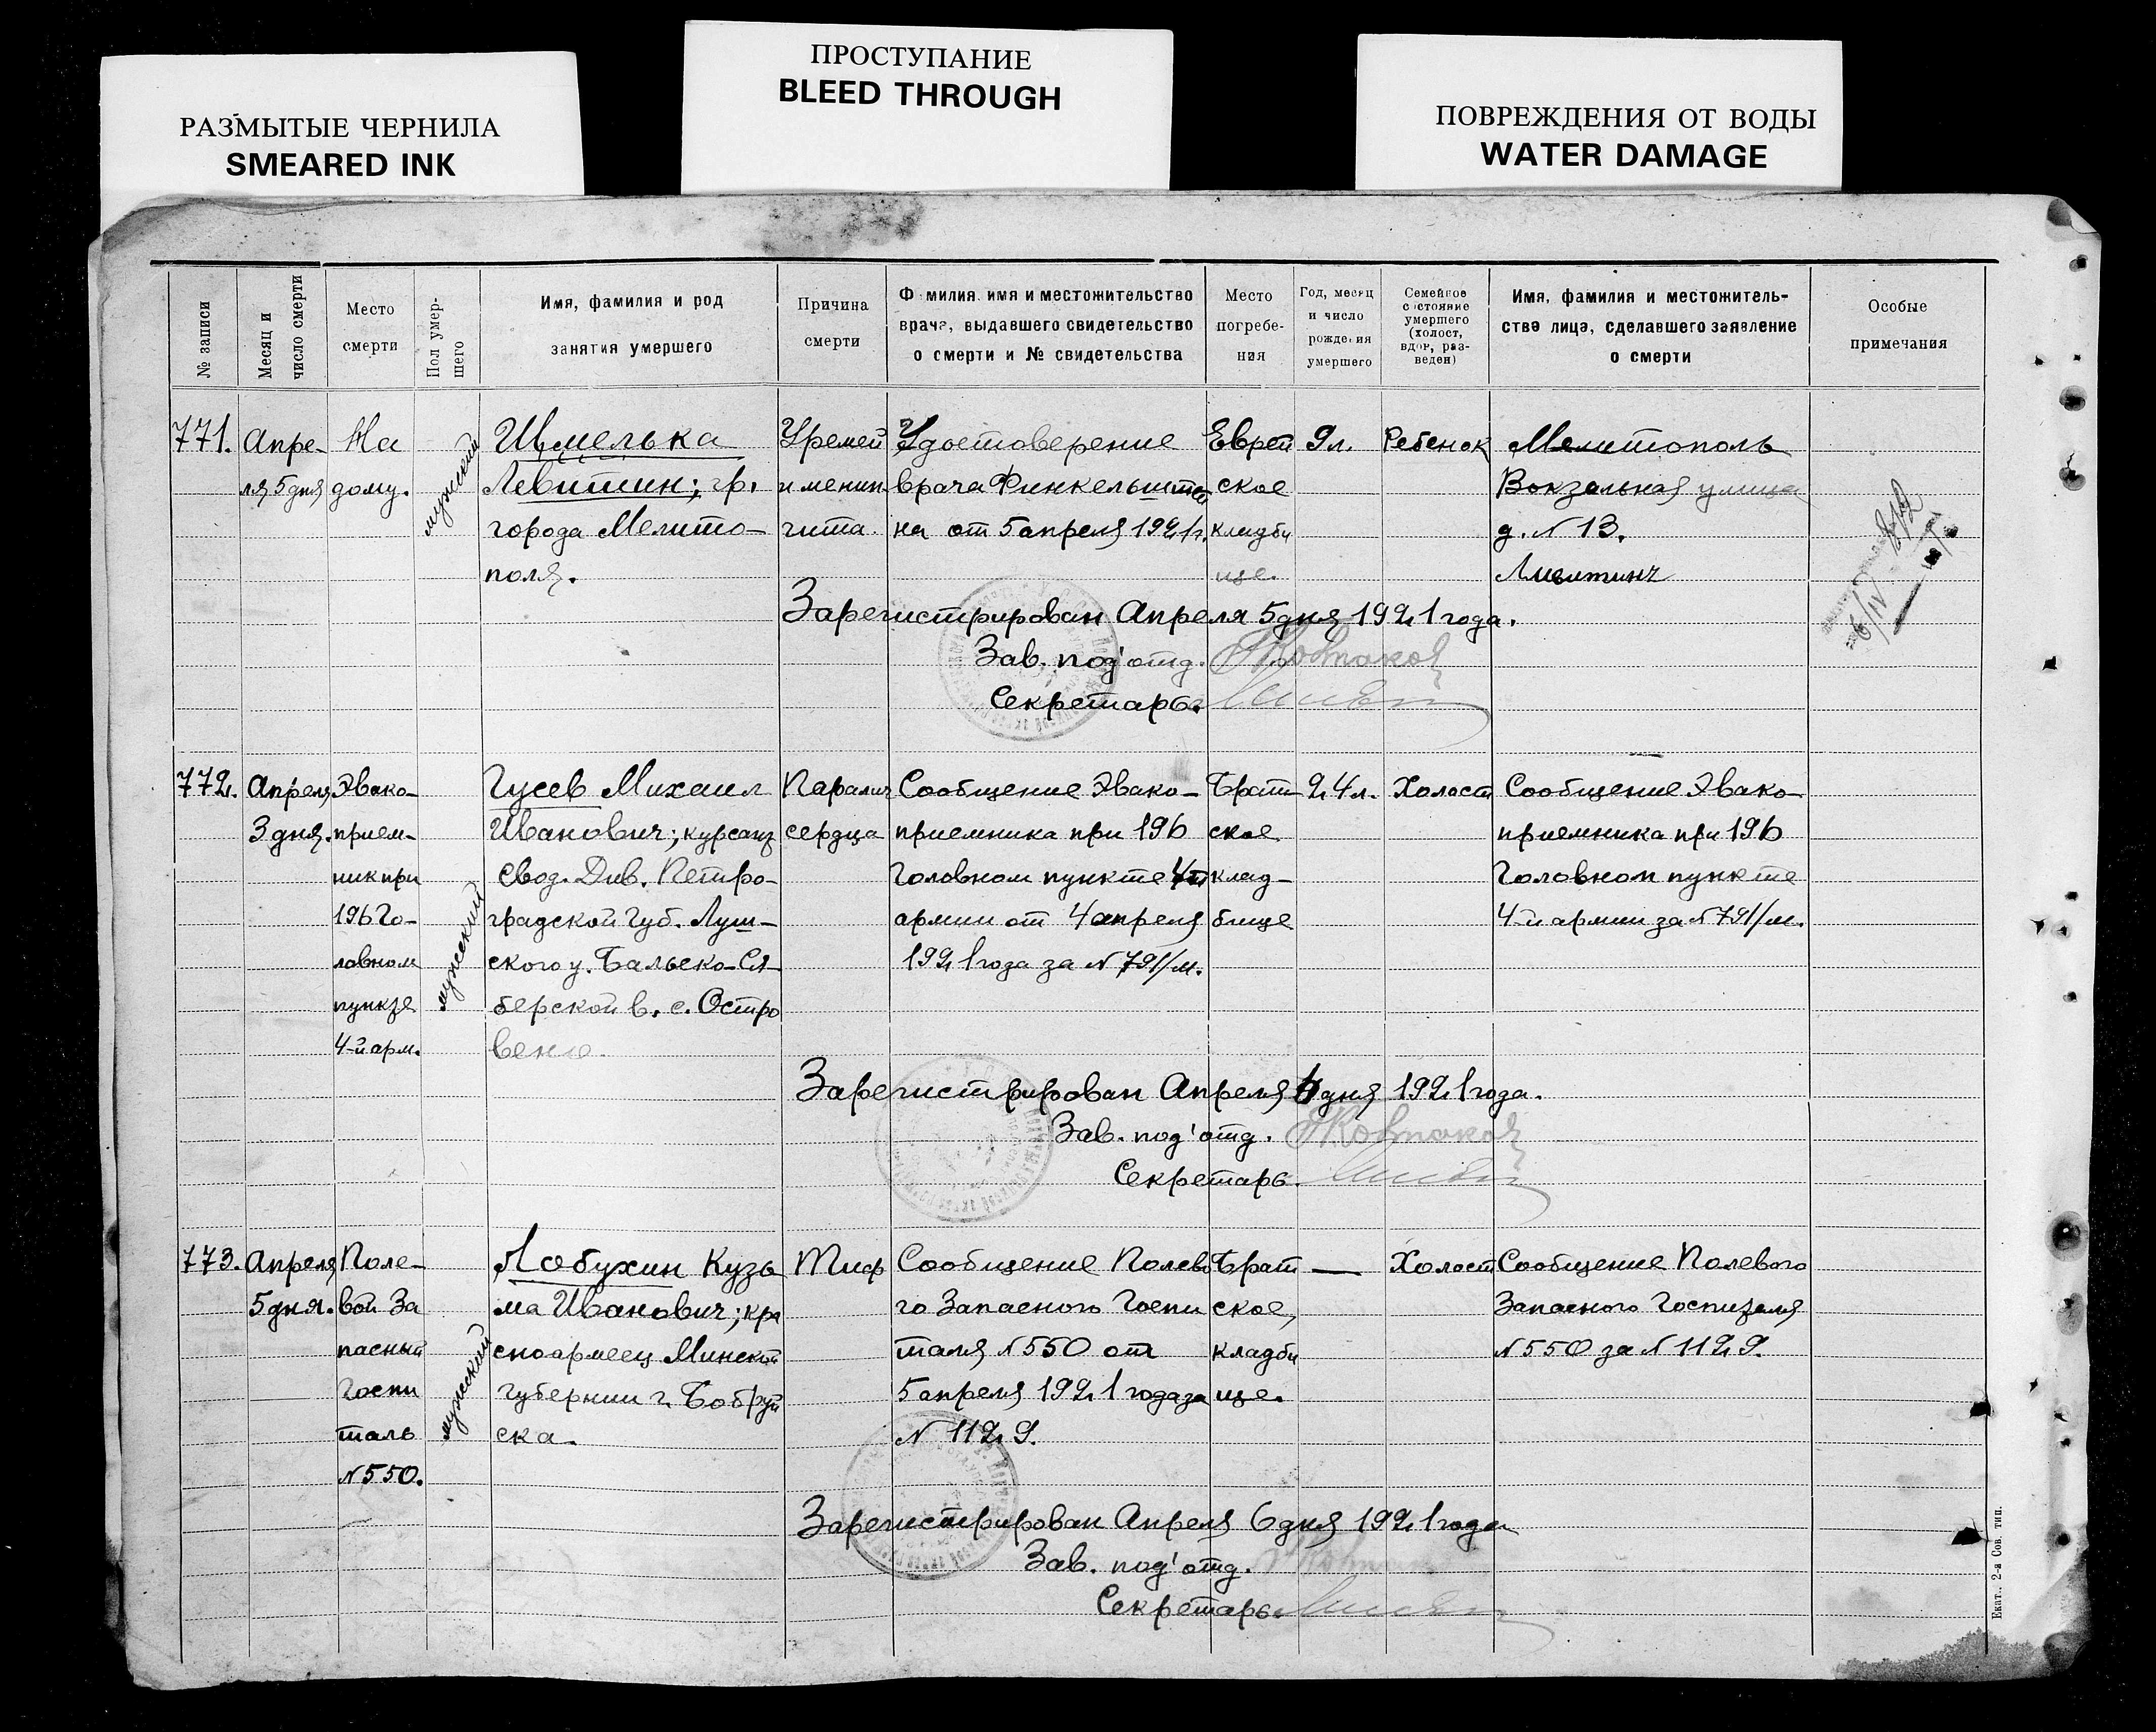 РАЗМЫТЫЕ ЧЕРНИЛА
SMEARED INK
ПРОСТУПАНИЕ
BLEED THROUGH
ПОВРЕЖДЕНИЯ ОТ ВОДЫ
WATER DAMAGE
№ записи
Месяц и
число смерти
Место
смерти
Пол умер-
шего
Имя, фамилия и род
занятия умершего
Причина
смерти
Фамилия, имя и местожительство
врача, выдавшего свидетельство
о смерти и № свидетельства
Место
погребе-
ния
Год, месяц
и число
рождения
умершего
Семейное
состояние
умершего
(холост,
вдов, раз-
веден)
Имя, фамилия и местожитель-
ство лица, сделавшего заявление
о смерти
Особые
примечания
771.
Апре-
ля 5 дня
На
дому.
мужской
Шмелька
Левитин; гр.
города Мелито-
поля.
Уремей
и менин
гита.
Удостоверение
врача Финкельштей
на от 5 апреля 1921 г.
Еврей
ское
кладби
ще.
9 л.
Ребенок
Мелитополь
Вокзальная улица
д. N 13.
6/IV
Зарегистрирован Апреля 5 дня 1921 года.
Зав. под'отд.
Секретарь.
772.
Апреля
3 дня.
Эвако-
прием-
ник при
196 Го-
ловном
пункте
4-й арм.
мужской
Гусев Михаил
Иванович; курсант
Свод. Див. Петро-
градской Губ. Луш-
ского у. Бальско-Ся-
берской в. с. Остро
вено.
Паралич
сердца
Сообщение Эвако-
приемника при 196
Головном пункте 4й
армии от 4 апреля
1921 года за N 791/м.
Брат
ское
клад-
бище
24 л.
Холост
Сообщение Эвако-
приемника при 196
Головном пункте
4-й армии за N 791/м.
Зарегистрирован Апреля 6 дня 1921 года.
Зав. под'отд.
Секретарь.
773.
Апреля
5 дня.
Поле-
вой За
пасный
Госпи
таль
N 550.
мужской
Лобухин Кузь
ма Иванович; кра
сноармеец Минской
губернии г. Бобруй
ска.
Тиф
Сообщение Полево
го Запасного Госпи
таля N 550 от
5 апреля 1921 года за
N 1129.
Брат
ское
кладби
ще.
—
Холост
Сообщение Полевого
Запасного Госпиталя
N 550 за N 1129.
Зарегистрирован Апреля 6 дня 1921 года
Зав. под'отд.
Секретарь.
Екат., 2-я Сов. тип.